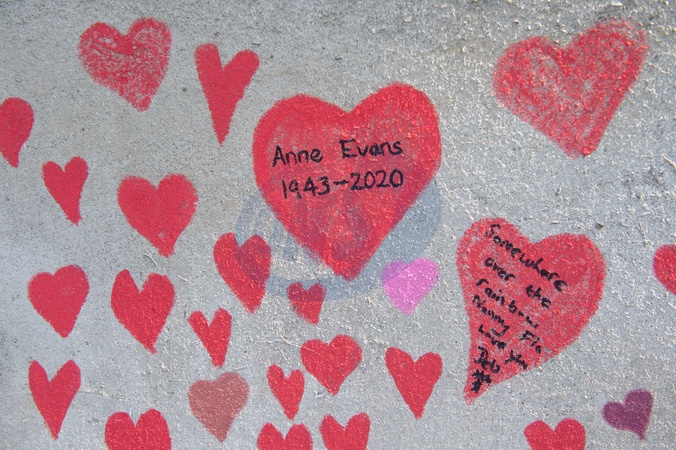 Anne Evans
1943-2020
Somewhere
over the
rainbow
Nanny Flo
Love you